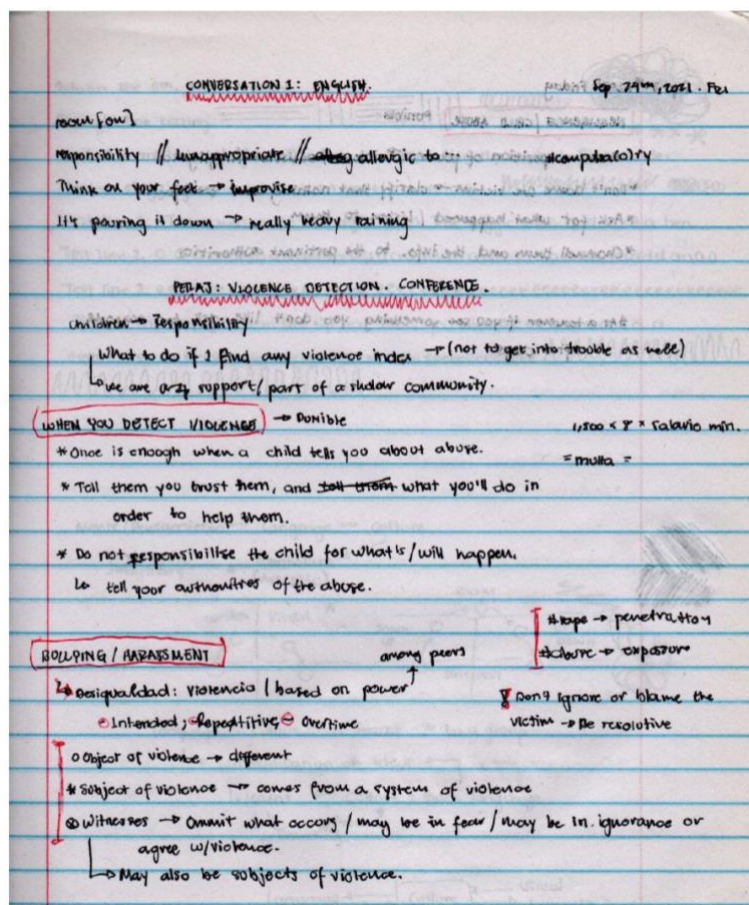 CONVERSATION 1: ENGLISH. Sep. 24th, 2021. Fri
responsibility // innappropriate // allergic to
Think on your feet → improvise
It's pouring it down → really heavy raining
PERAJ: VIOLENCE DETECTION. CONFERENCE.
children → responsibility
What to do if I find any violence index → (not to get into trouble as well)
we are support/part of a community.
WHEN YOU DETECT VIOLENCE → Punible 1,500 < 8 × salario mín.
*Once is enough when a child tells you about abuse. = multa =
* Tell them you trust them, and tell them what you'll do in
order to help them.
* Do not responsibilise the child for what is/will happen.
tell your of the abuse.
*rape → penetration
BULLPING / HARASSMENT among peers *abuse → exposure
Desigualdad: violencia / based on power Don't ignore or blame the
Intended; Repetitive; Overtime victim → Be resolutive
Object of violence → different
* Subject of violence → comes from a system of violence
Witnesses → Ommit what occurs / may be in fear / may be in. ignorance or
agree w/violence.
→ May also be subjects of violence.